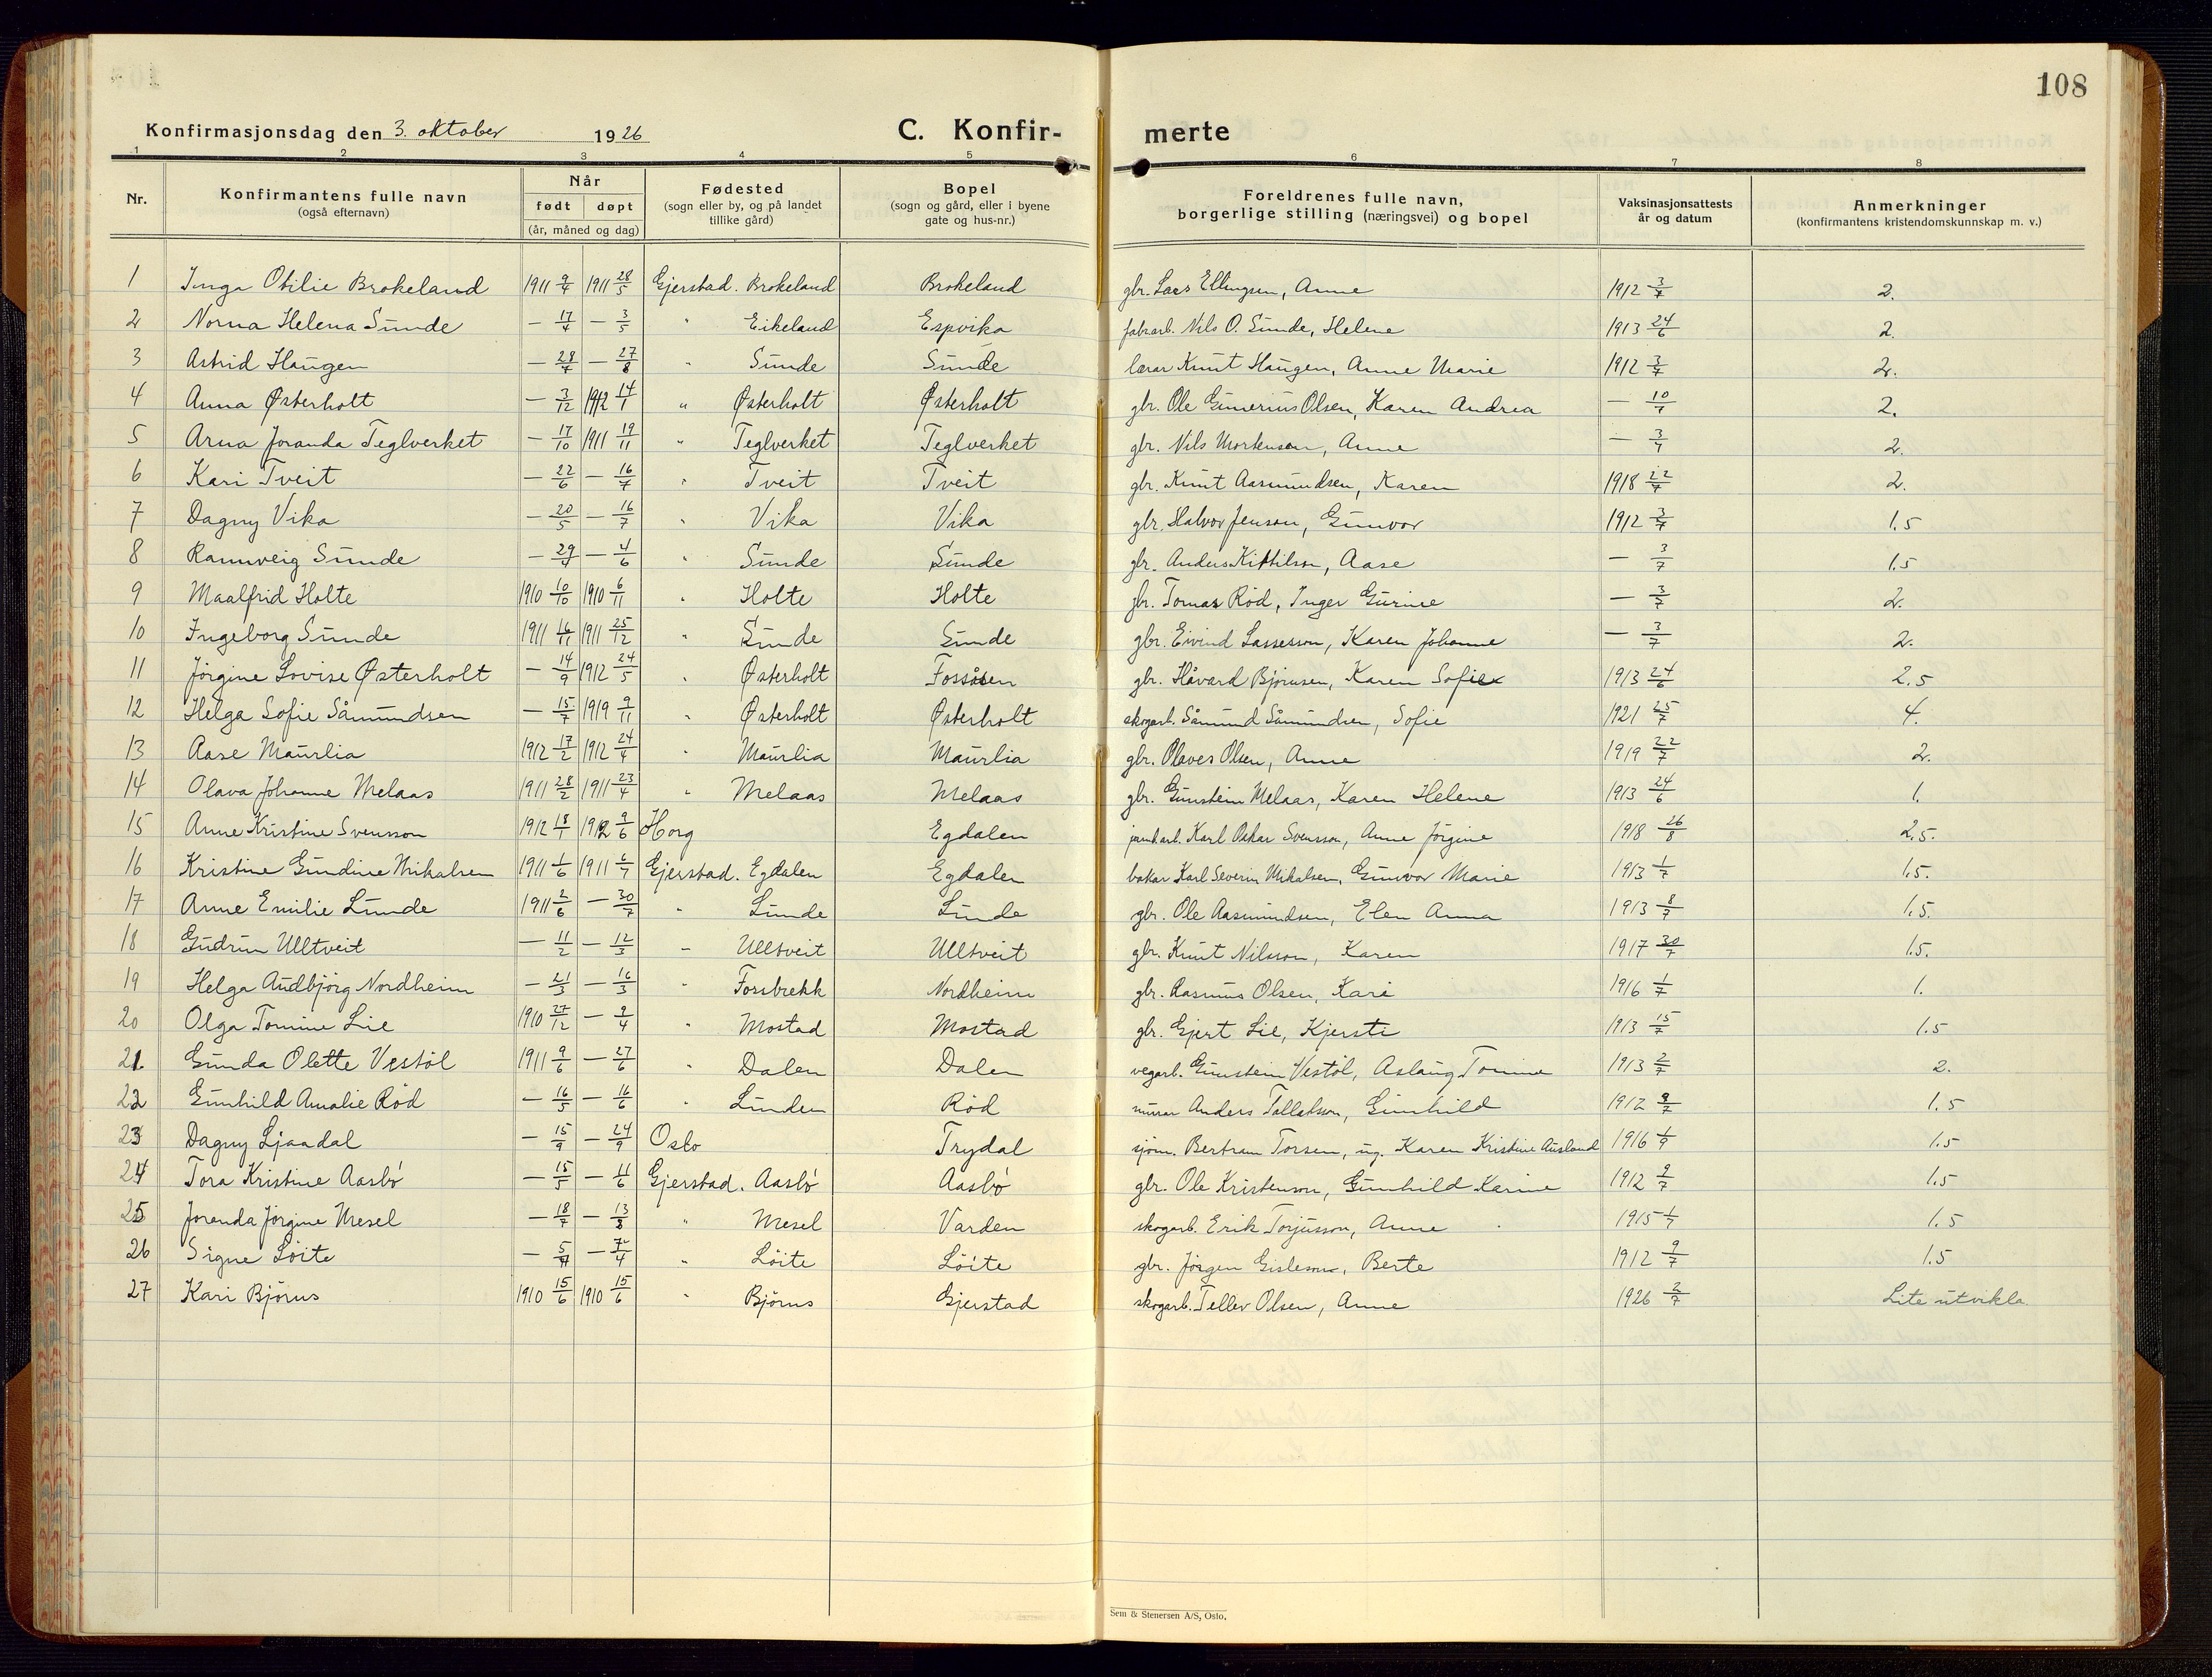 108
Konfirmasjonsdag den 3. oktober 1926 C. Konfir- merte
1 2 3 4 5 6 7 8
Nr. Konfirmantens fulle navn (også efternavn) Når født døpt (år, måned og dag) Fødested (sogn eller by, og på landet tillike gård) Bopel (sogn og gård, eller i byene gate og hus-nr.) Foreldrenes fulle navn, borgerlige stilling (næringsvei) og bopel Vaksinasjonsattests år og datum Anmerkninger (konfirmantens kristendomskunnskap m. v.)
1 Inga Otilie Brokeland 1911 9/4 1911 28/5 Gjerstad. Brokeland Brokeland gbr. Lars Ellingsen, Anne 1912 3/7 2.
2 Norna Helena Sunde — 17/4 — 3/5 " Eikeland Espvika fabrarb. Nils O. Sunde, Helene 1913 24/6 2.
3 Astrid Haugen — 28/7 — 27/8 " Sunde Sunde lærar Knut Haugen, Anne Marie 1912 3/7 2.
4 Anna Østerholt — 3/12 1912 14/1 " Østerholt Østerholt gbr. Ole Gunerius Olsen, Karen Andrea — 10/7 2.
5 Arna Joranda Teglverket — 17/10 1911 19/11 " Teglverket Teglverket gbr. Nils Mortensen, Anne — 3/7 2.
6 Kari Tveit — 22/6 — 16/7 " Tveit Tveit gbr. Knut Aasmundsen, Karen 1918 22/7 2.
7 Dagny Vika — 20/5 — 16/7 " Vika Vika gbr. Halvor Jenson, Gunvor 1912 3/7 1.5
8 Rannveig Sunde — 29/4 — 4/6 " Sunde Sunde gbr. Anders Kittilson, Aase — 3/7 1.5
9 Maalfrid Holte 1910 10/10 1910 6/11 " Holte Holte gbr. Tomas Rød, Inger Gurine — 3/7 2.
10 Ingeborg Sunde 1911 16/11 1911 25/12 " Sunde Sunde gbr. Eivind Lassesson, Karen Johanne — 3/7 2.
11 Jörgine Lovise Østerholt — 14/9 1912 24/5 " Østerholt Fossåsen gbr. Håvard Bjørnsen, Karen Sofie 1913 24/6 2.5
12 Helga Sofie Såmundsen — 15/7 1919 9/11 " Østerholt Østerholt skogarb. Såmund Såmundsen, Sofie 1921 25/7 4.
13 Aase Maurlia 1912 17/2 1912 24/4 " Maurlia Maurlia gbr. Olaves Olsen, Anne 1919 22/7 2.
14 Olava Johanne Melaas 1911 28/2 1911 23/4 " Melaas Melaas gbr. Gunstein Melaas, Karen Helene 1913 24/6 1.
15 Anne Kristine Svensson 1912 18/1 1912 9/6 Horg Egdalen jarnb.arb. Karl Oskar Svensson, Anne Jörgine 1918 26/8 2.5.
16 Kristine Gundine Mikalsen 1911 1/6 1911 6/7 Gjerstad. Egdalen Egdalen bakar Karl Severin Mikalsen, Gunvor Marie 1913 1/7 1.5.
17 Anne Emilie Lunde 1911 2/6 — 30/7 " Lunde Lunde gbr. Ole Aasmundsen, Elen Anna 1913 8/7 1.5.
18 Gudrun Ulltveit — 11/2 — 12/3 " Ulltveit Ulltveit gbr. Knut Nilsson, Karen 1917 30/7 1.5.
19 Helga Audbjörg Nordheim — 21/3 — 16/3 " Forsbrekk Nordheim gbr. Rasmus Olsen, Kari 1916 1/7 1.
20 Olga Tomine Lie 1910 27/12 — 9/4 " Mostad Mostad gbr. Gjert Lie, Kjersti 1913 15/7 1.5
21. Gunda Olette Vestöl 1911 9/6 — 27/6 " Dalen Dalen vegarb. Gunstein Vestöl, Aslaug Tomine 1913 2/7 2.
22 Gunhild Amalie Röd — 16/5 — 16/6 " Lunden Röd murar Anders Tallakson, Gunhild 1912 9/7 1.5
23 Dagny Ljaadal — 15/9 — 24/9 Oslo Trydal sjöm. Bertram Torsen, ug. Karen Kristine Ausland 1916 1/9 1.5
24 Tora Kristine Aasbö — 15/5 — 11/6 Gjerstad. Aasbö Aasbö gbr. Ole Kristenson, Gunhild Karine 1912 9/7 1.5
25 Joranda Jörgine Mesel — 18/7 — 13/8 " Mesel Varden skogarb. Erik Torjusson, Anne 1915 1/7 1.5
26 Signe Löite — 5/ — /4 " Löite Löite gbr. Jörgen Gisleson, Berte 1912 9/7 1.5
27 Kari Björnus 1910 15/6 1910 15/6 " Björnus Gjerstad skogarb. Tellev Olsen, Anne 1926 2/7 Lite utvikla
Sem & Stenersen A/S, Oslo.